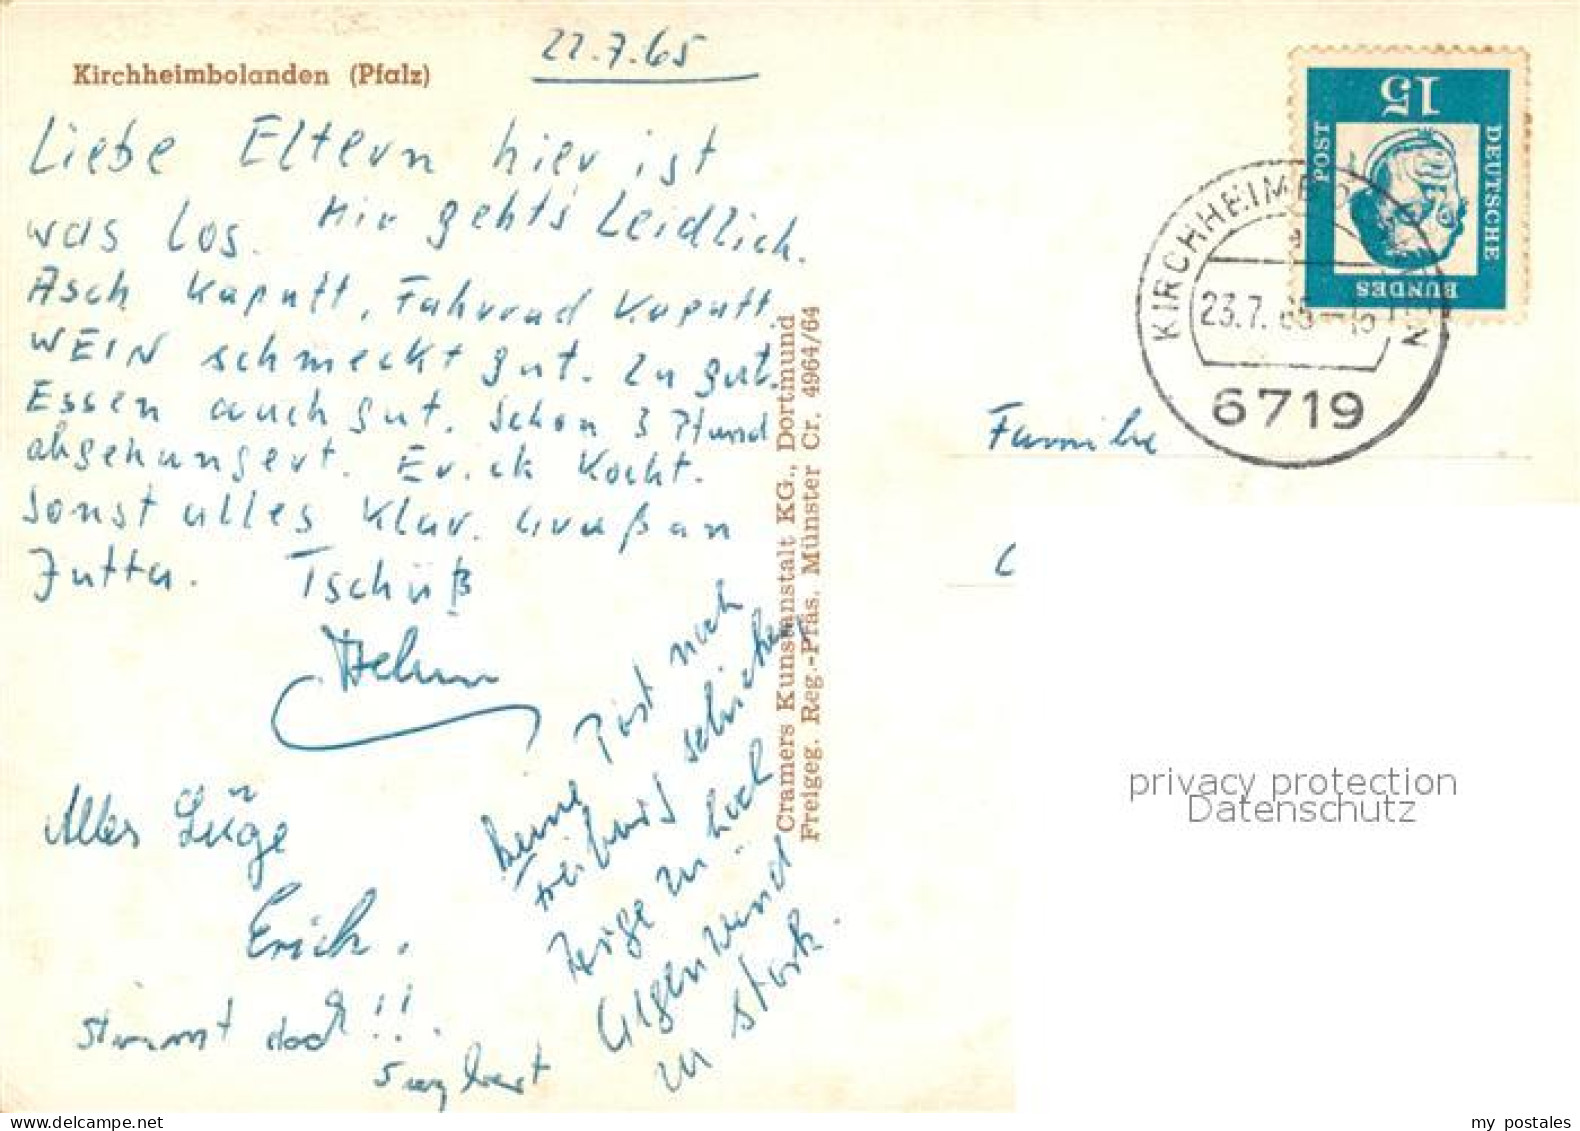 Kirchheimbolanden (Pfalz)
22.7.65
Liebe Eltern hier ist
was los. Mir gehts Leidlich.
Asch kaputt, Fahrrad kaputt.
WEIN schmeckt gut. Zu gut.
Essen auch gut. Schon 3 Pfund
abgehungert. Erich kocht.
Sonst alles klar. Gruß an
Jutta. Tschüß
Alles Lüge
Erich.
stimmt doch!!
Keine Post nach
Freiburg schicken
Berge zu hoch
Gegenwind
zu stark.
Cramers Kunstanstalt KG., Dortmund
Freigeg. Reg.-Präs. Münster Cr. 4964/64
DEUTSCHE
BUNDES
POST
15
23.7.65-16
6719
Familie
privacy protection
Datenschutz
my postales